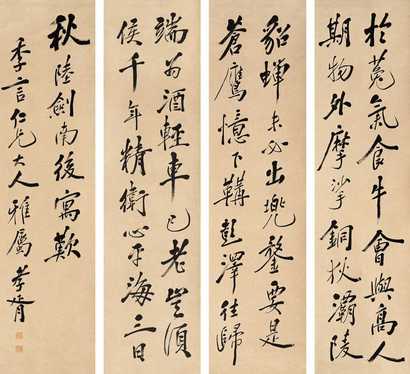 於菟氣食牛會與高人
期物外摩挲銅狄灞陵
貂蟬未必出兜鍪要是
蒼鷹憶下鞲彭澤徑歸
端為酒輕車已老豈須
侯千年精衛心平海三日
秋陸劍南後寓歎
季言仁兄大人雅屬孝胥